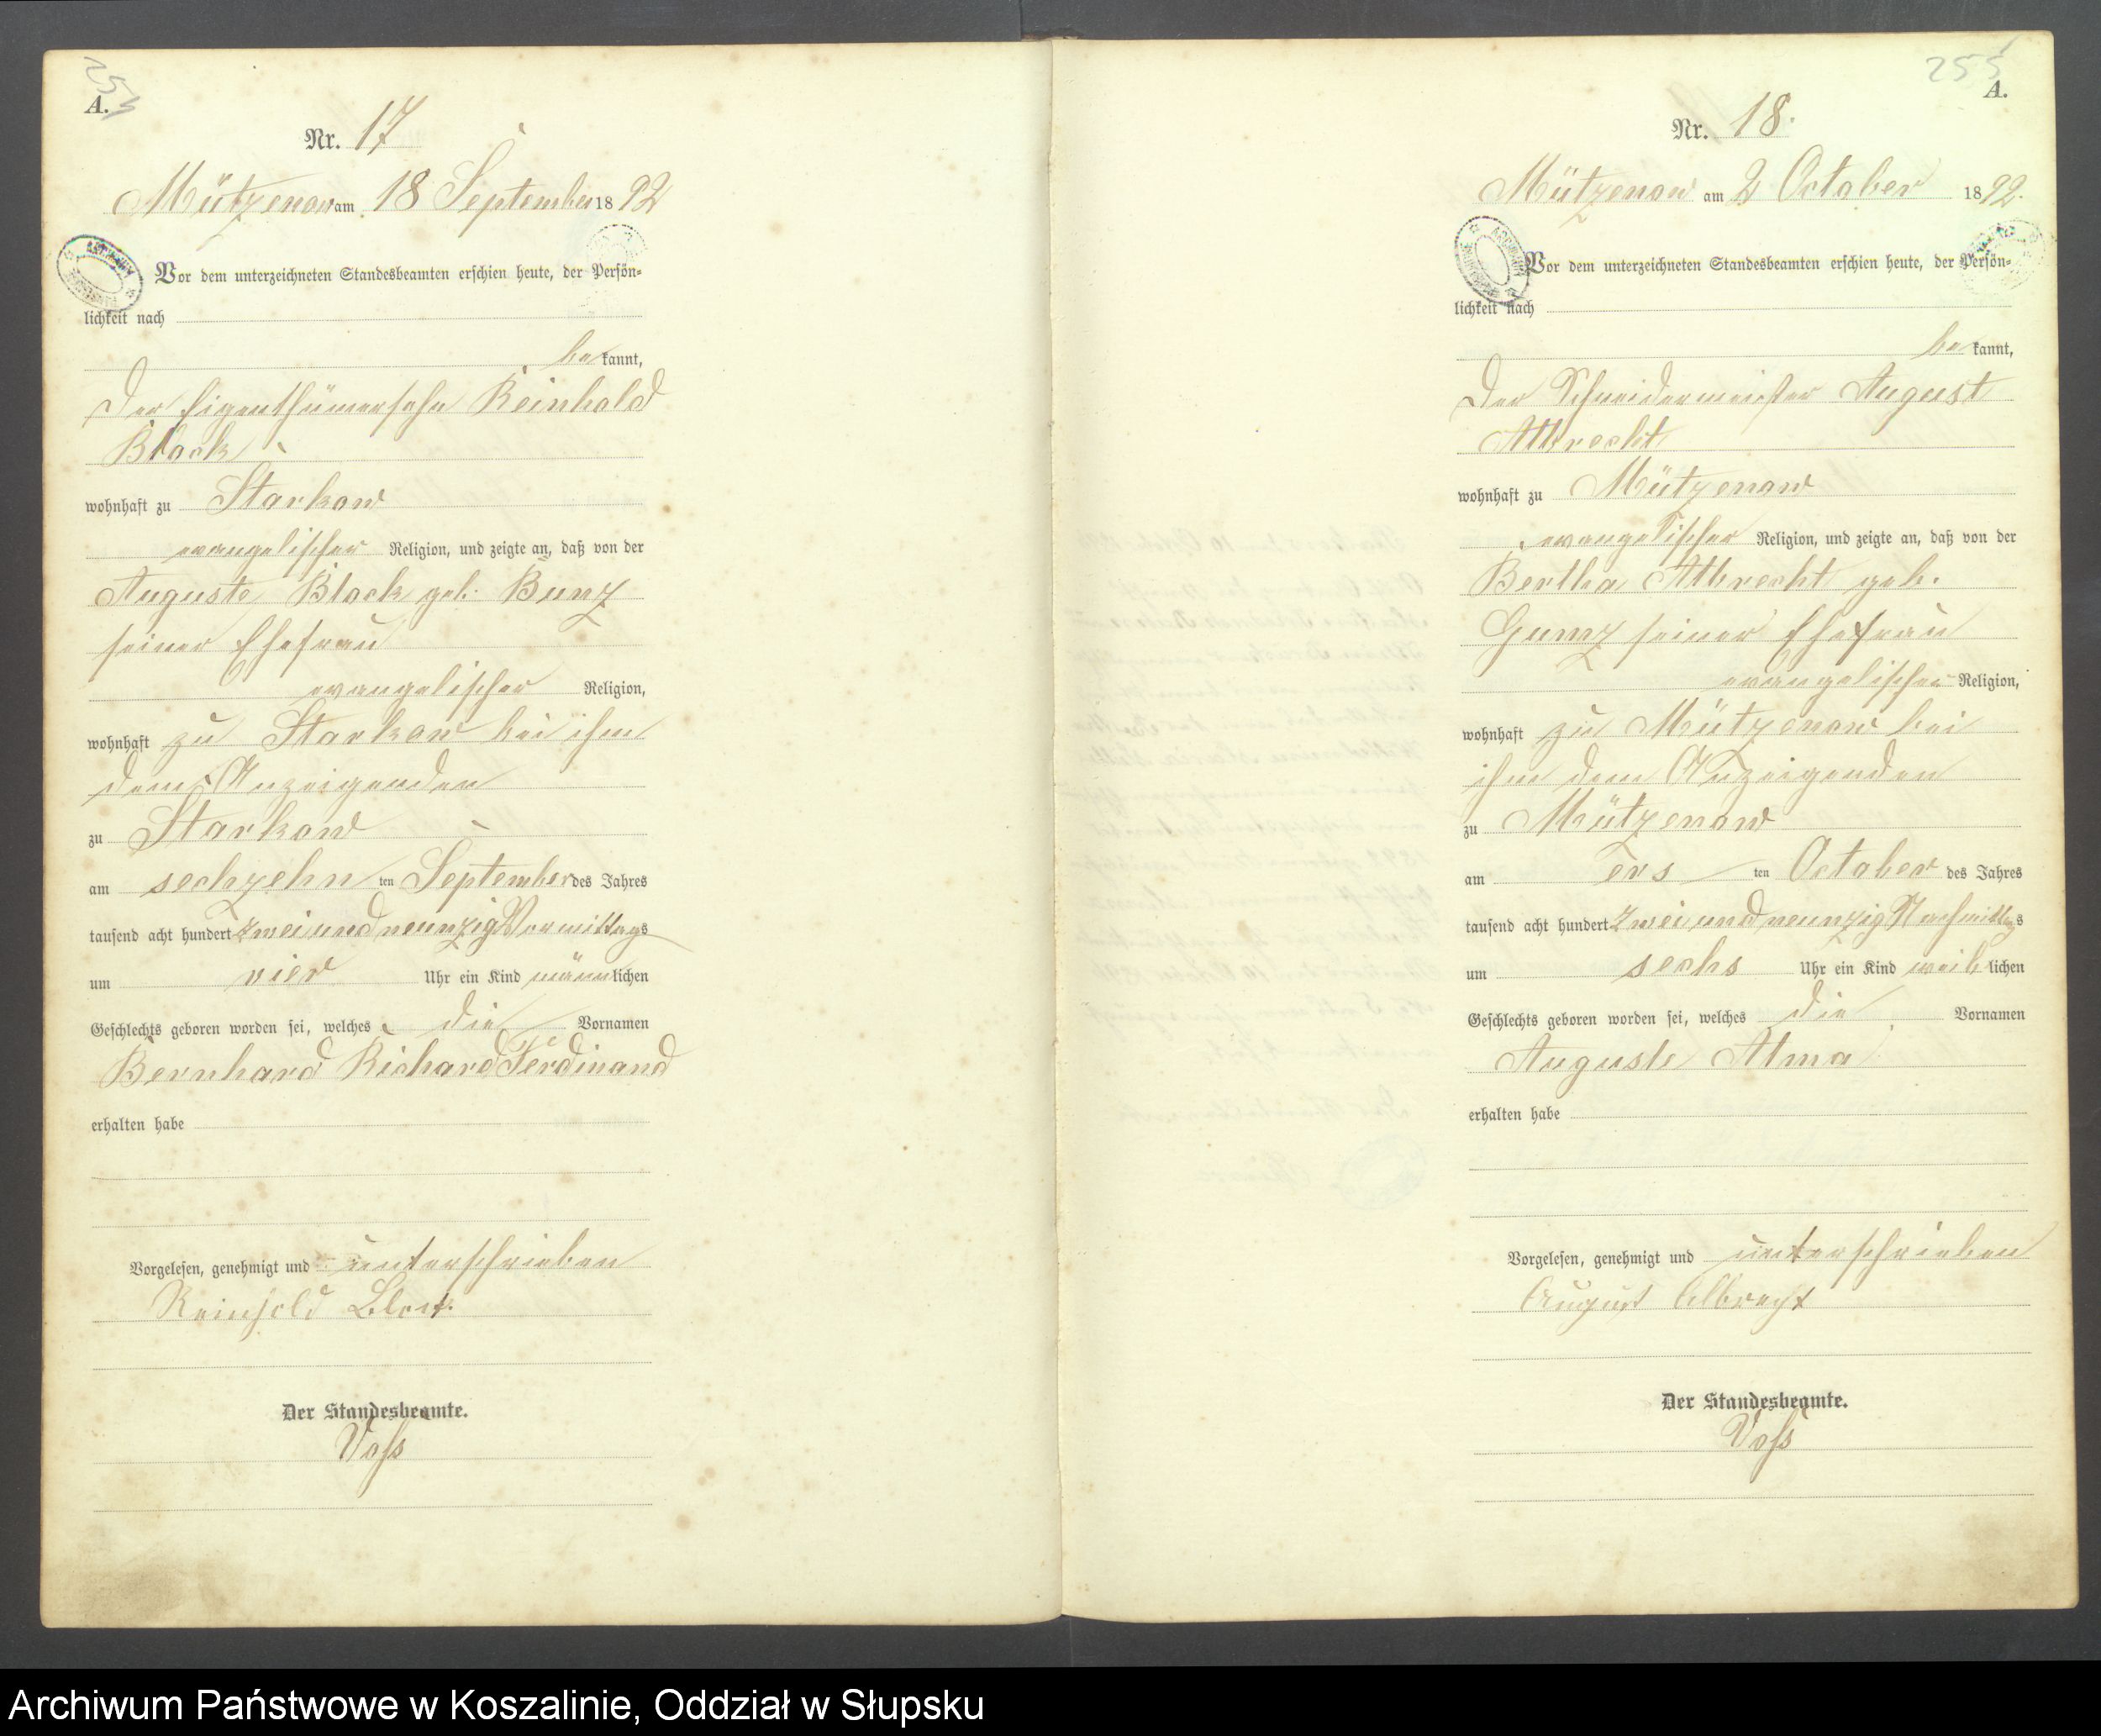 253
A.
Nr. 17
Mützenow am 18 September 1892
Vor dem unterzeichneten Standesbeamten erschien heute, der Persön-
lichkeit nach
bekannt,
Der Eigenthümersohn Reinhold
Block
wohnhaft zu Starkow
evangelischer Religion, und zeigte an, daß von der
Auguste Block geb. Bunz
seiner Ehefrau
evangelischer Religion,
wohnhaft zu Starkow bei ihm
dem Anzeigenden
zu Starkow
am sechzehn ten September des Jahres
tausend acht hundert zwei und neunzig Vormittags
um vier Uhr ein Kind männlichen
Geschlechts geboren worden sei, welches die Vornamen
Bernhard Richard Ferdinand
erhalten habe
Vorgelesen, genehmigt und unterschrieben
Reinhold Block
Der Standesbeamte.
Voß
255
A.
Nr. 18.
Mützenow am 2 October 1892.
Vor dem unterzeichneten Standesbeamten erschien heute, der Persön-
lichkeit nach
bekannt,
Der Schneidermeister August
Albrecht
wohnhaft zu Mützenow
evangelischer Religion, und zeigte an, daß von der
Bertha Albrecht geb.
Gunz seiner Ehefrau
evangelischer Religion,
wohnhaft zu Mützenow bei
ihm dem Anzeigenden
zu Mützenow
am ers ten October des Jahres
tausend acht hundert zwei und neunzig Nachmittags
um sechs Uhr ein Kind weiblichen
Geschlechts geboren worden sei, welches die Vornamen
Auguste Alma
erhalten habe
Vorgelesen, genehmigt und unterschrieben
August Albrecht
Der Standesbeamte.
Voß
Archiwum Państwowe w Koszalinie, Oddział w Słupsku